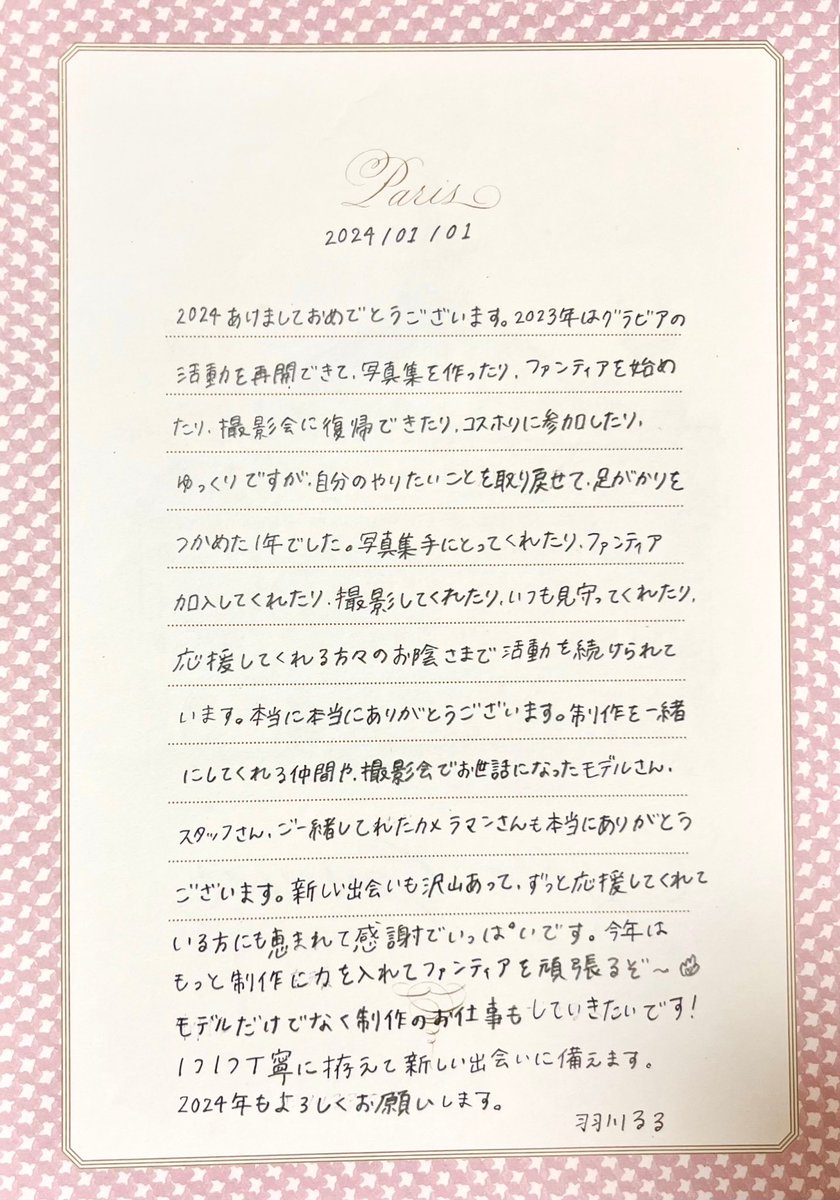 Paris
2024/01/01
2024あけましておめでとうございます。2023年はグラビアの
活動を再開できて、写真集を作ったり、ファンティアを始め
たり、撮影会に復帰できたり、コスホリに参加したり、
ゆっくりですが、自分のやりたいことを取り戻せて、足がかりを
つかめた1年でした。写真集手にとってくれたり、ファンティア
加入してくれたり、撮影してくれたり、いつも見守ってくれたり、
応援してくれる方々のお陰さまで活動を続けられて
います。本当に本当にありがとうございます。制作を一緒
にしてくれる仲間や、撮影会でお世話になったモデルさん、
スタッフさん、ご一緒してれたカメラマンさんも本当にありがとう
ございます。新しい出会いも沢山あって、ずっと応援してくれて
いる方にも恵まれて感謝でいっぱいです。今年は
もっと制作に力を入れてファンティアを頑張るぞ〜
モデルだけでなく制作のお仕事もしていきたいです!
1つ1つ丁寧に拵えて新しい出会いに備えます。
2024年もよろしくお願いします。
羽川るる